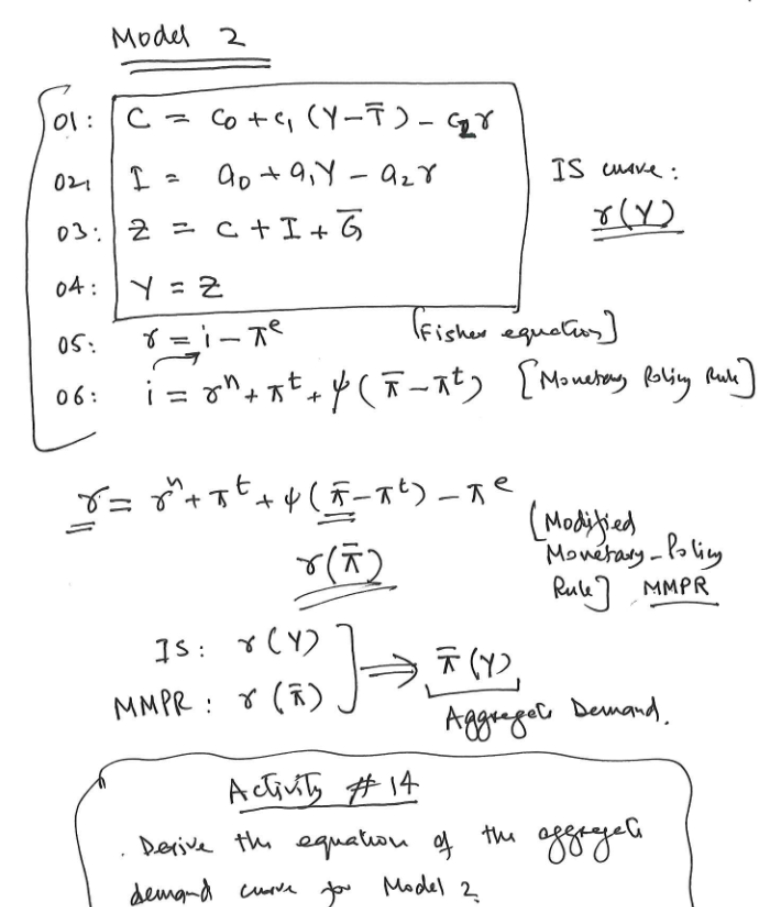 Model 2
01: C = c₀ + c₁ (Y - T̄) - c₂r
02: I = a₀ + a₁Y - a₂r
IS curve:
r(Y)
03: Z = C + I + Ḡ
04: Y = Z
05: r = i - π^e [Fisher equation]
06: i = r^n + π^t + ψ(π̄ - π^t) [Monetary Policy Rule]
r = r^n + π^t + ψ(π̄ - π^t) - π^e
[Modified
Monetary-Policy
Rule] MMPR
r(π̄)
IS: r(Y)
MMPR: r(π̄)
⟹ π̄(Y)
Aggregate Demand.
Activity # 14
. Derive the equation of the aggregate
demand curve for Model 2.